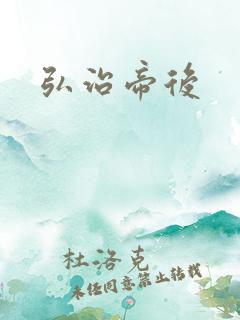 弘治帝後
杜洛克
未经同意禁止转载